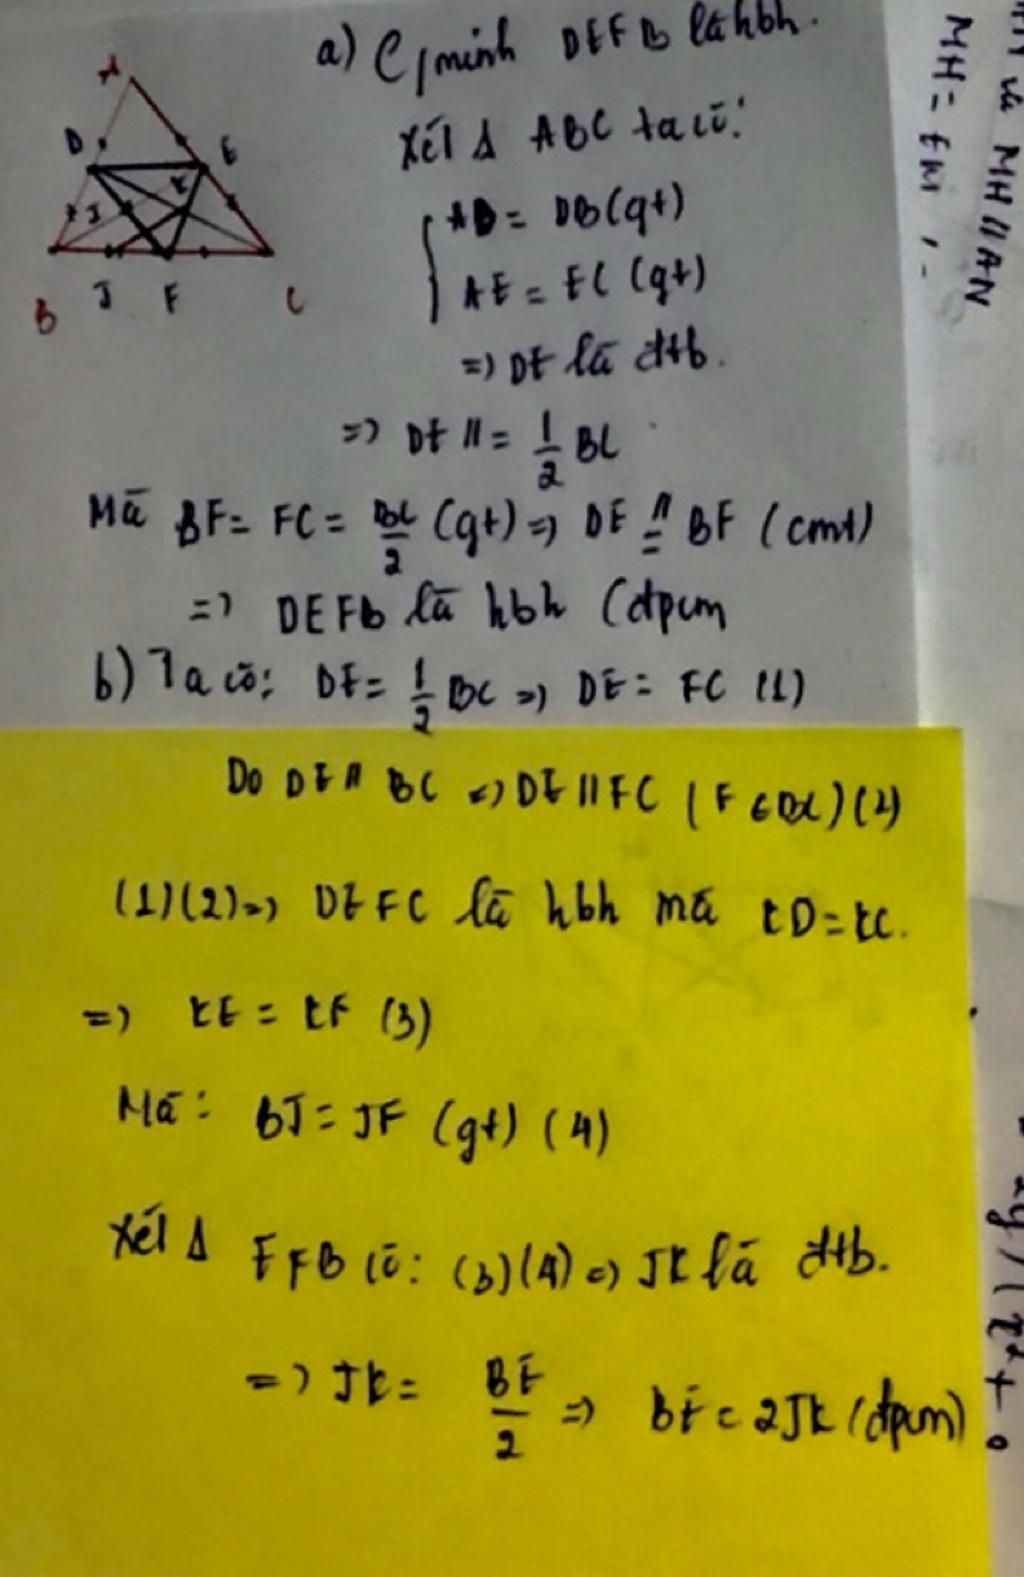 a) C/minh DEFB là hbh.
Xét Δ ABC ta có:
AD = DB (gt)
AE = EC (gt)
=> DE là đtb.
=> DE // = 1/2 BC
Mà BF = FC = BC/2 (gt) => DE // = BF (cmt)
=> DEFB là hbh (đpcm
b) Ta có: DE = 1/2 BC => DE = FC (1)
Do DE // BC => DE // FC (F ∈ BC) (2)
(1)(2) => DEFC là hbh mà KD = KC.
=> KE = KF (3)
Mà: BJ = JF (gt) (4)
Xét Δ EFB có: (3)(4) => JK là đtb.
=> JK = BE/2 => BE = 2JK (đpcm)
A
D
E
K
I
B
J
F
C
và MH // AN
MH =